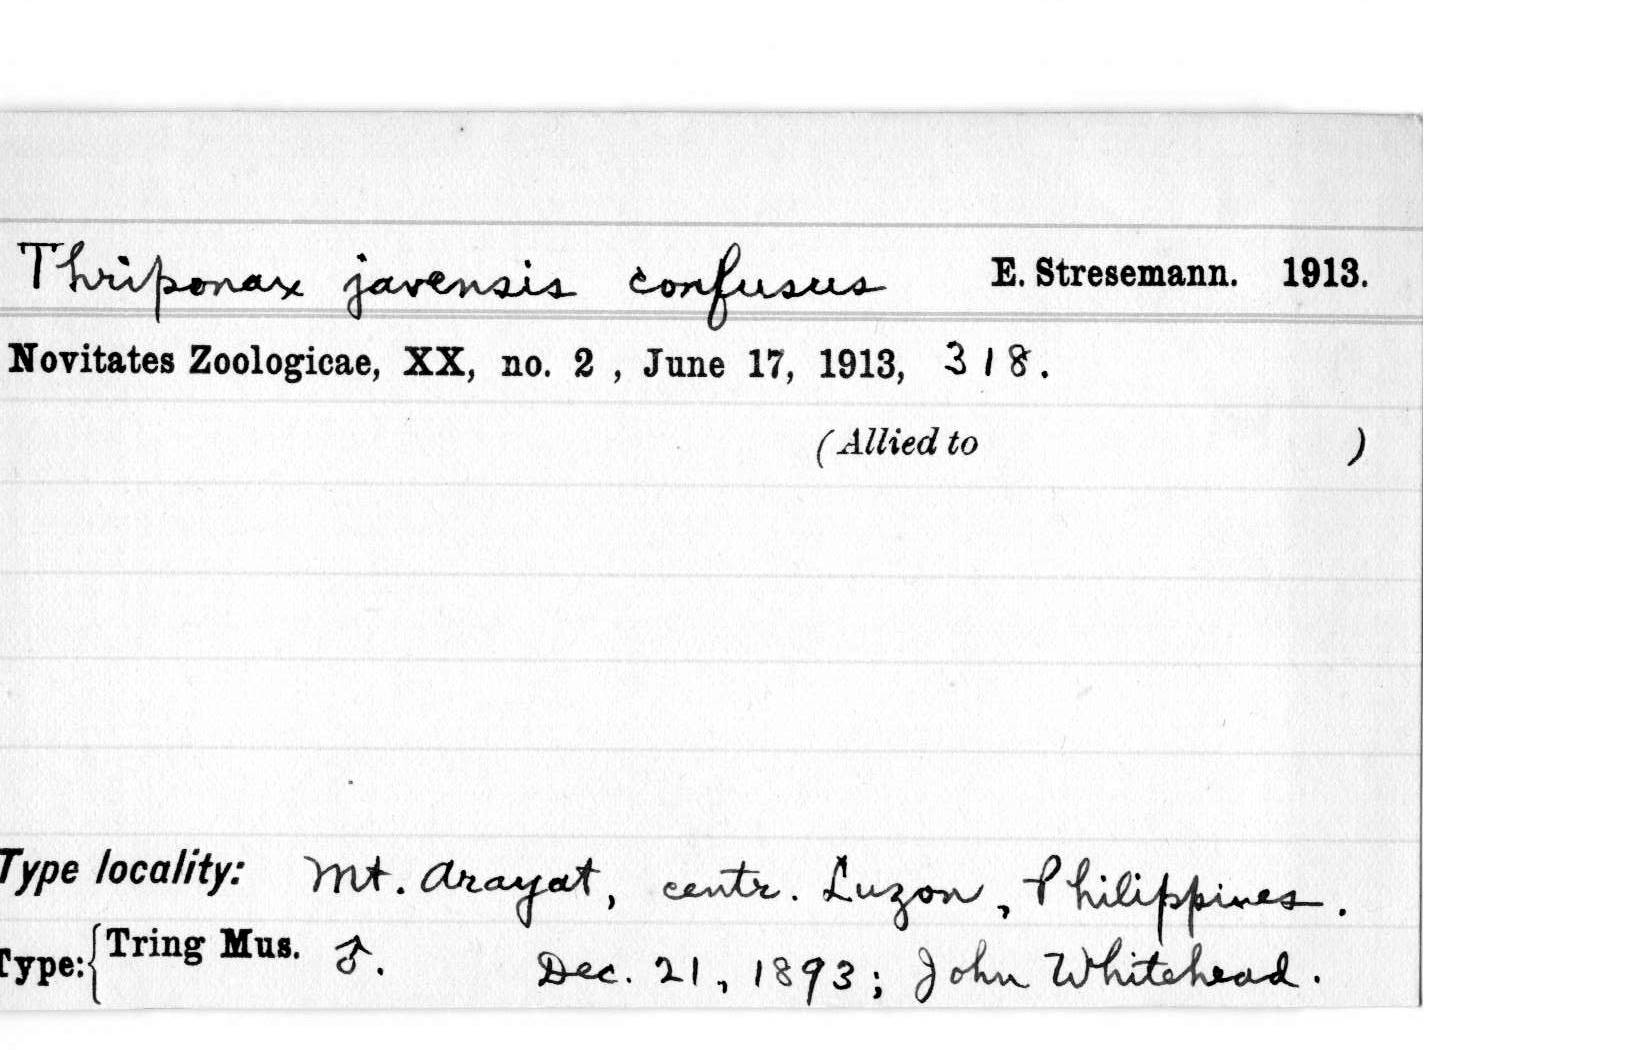 Thriponax javensis confusus E. Stresemann. 1913.
Novitates Zoologicae, XX, no. 2 , June 17, 1913, 318.
(Allied to )
Type locality: Mt. Arayat, centr. Luzon, Philippines.
Type: Tring Mus. ♂. Dec. 21, 1893; John Whitehead.